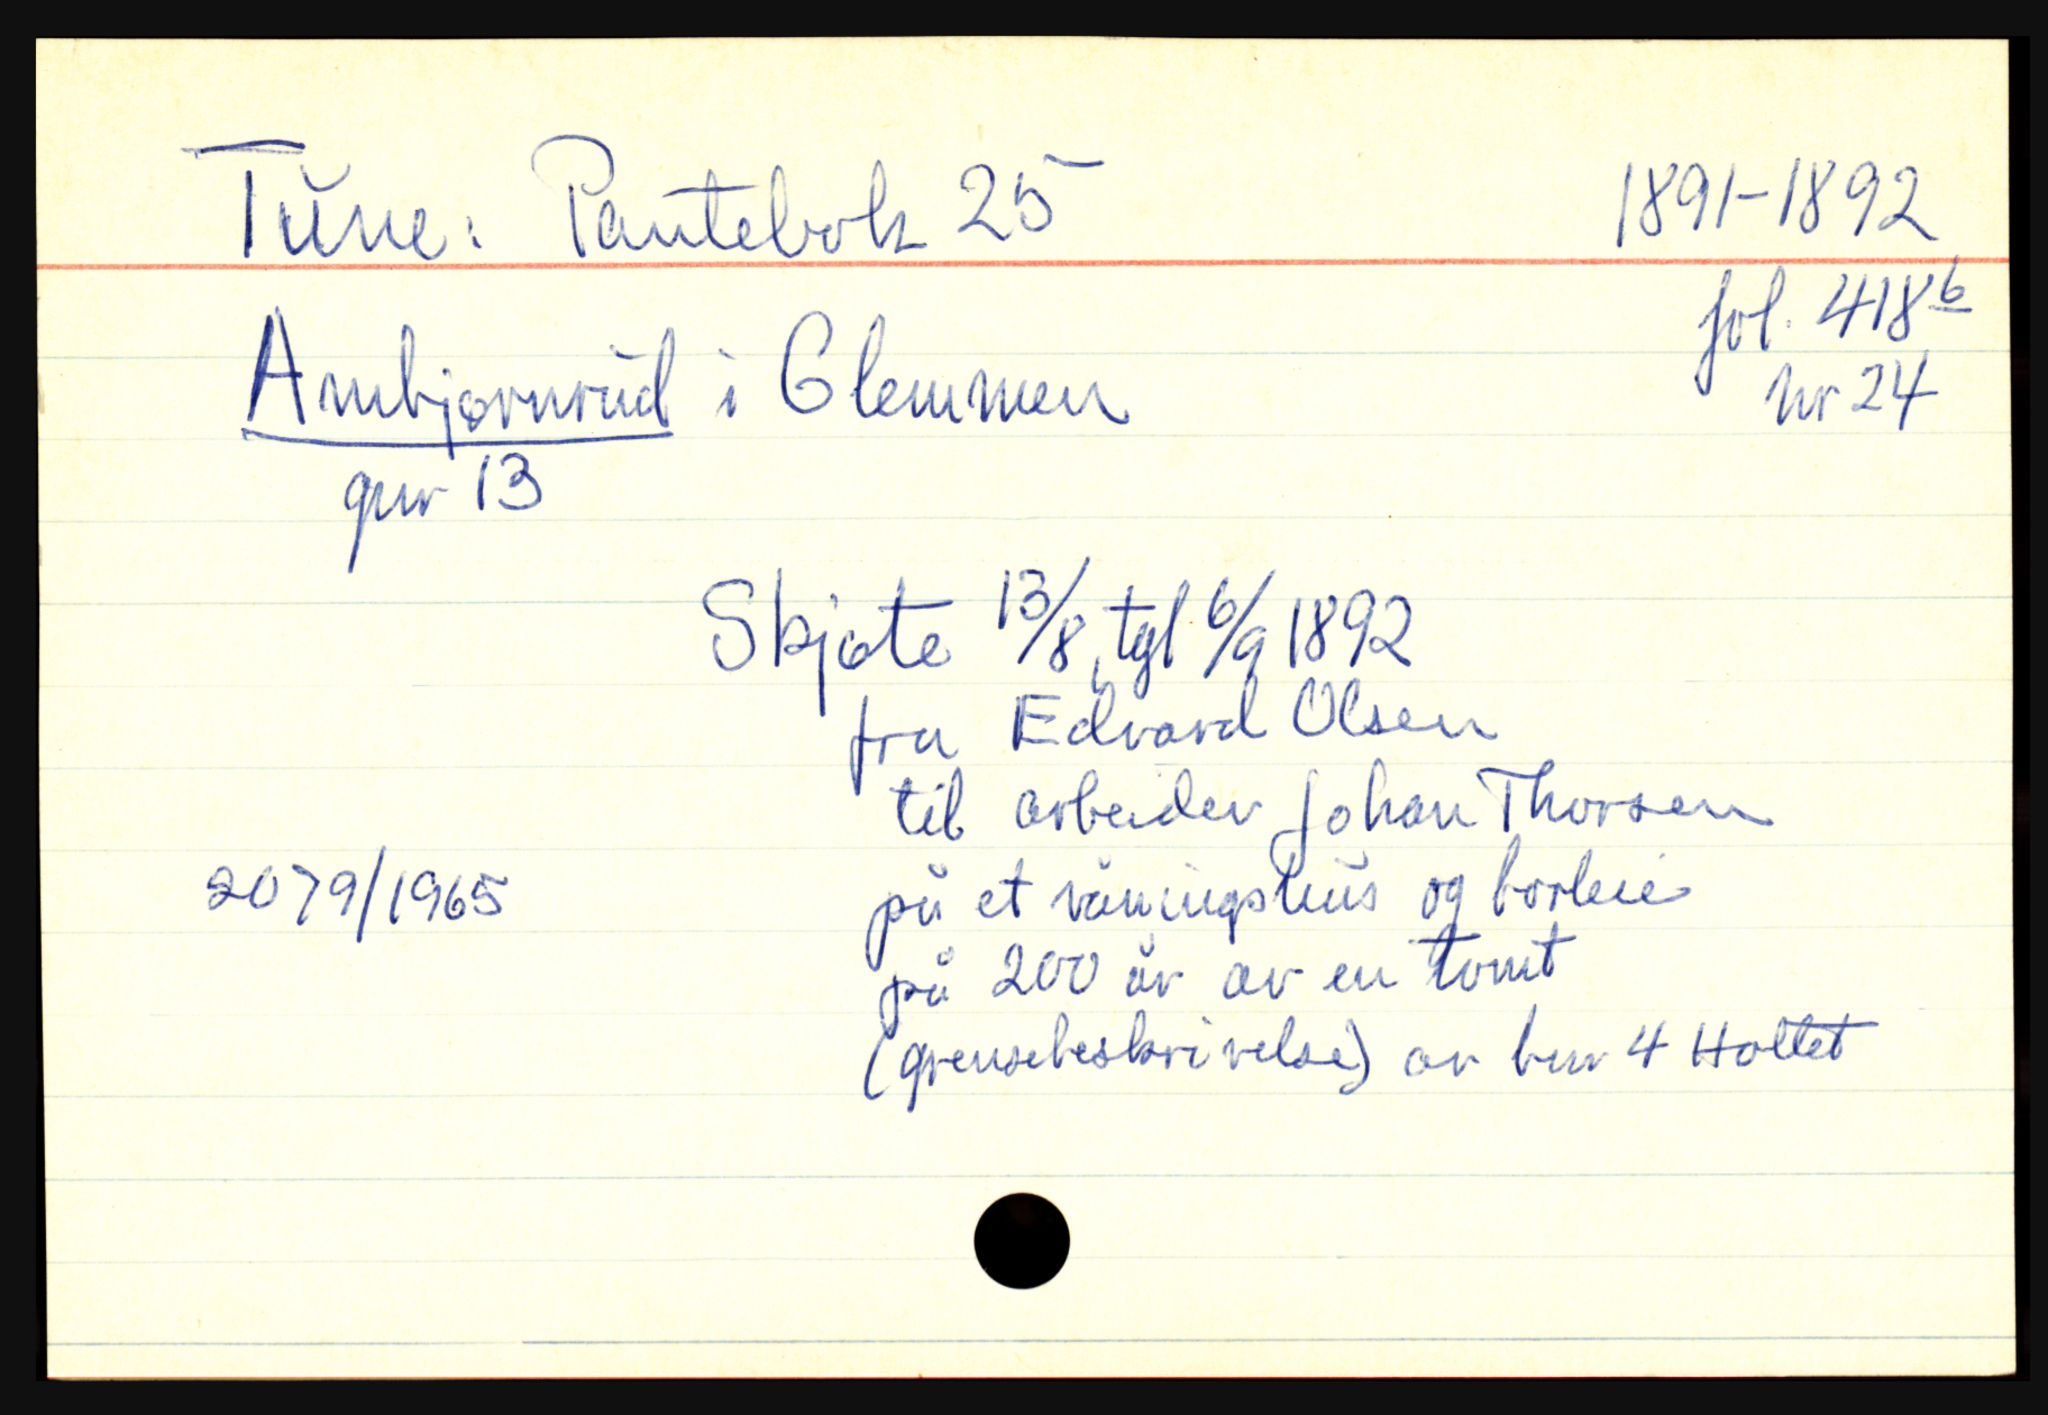 Tune: Pantebok 25 1891-1892
fol. 418b
Ambjørnrud i Glemmen nr 24
gnr 13
Skjøte 13/8, tgl 6/9 1892
fra Edvard Olsen
til arbeider Johan Thorsen
2079/1965 på et våningshus og borleie
på 200 år av en tomt
(grensebeskrivelse) av bnr 4 Holtet